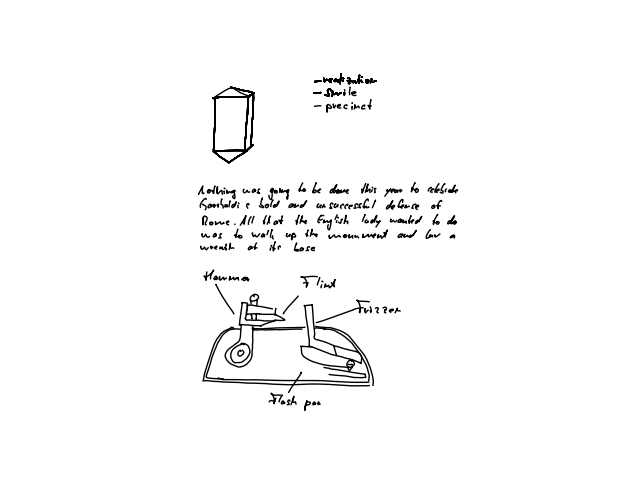 - realization
- smile
- precinct
Nothing was going to be done this year to celebrate
Garibaldi's bold and unsuccessful defense of
Rome. All that the English lady wanted to do
was to walk up the monument and lay a
wreath at its base
Hammer
Flint
Frizzer
Flash pan